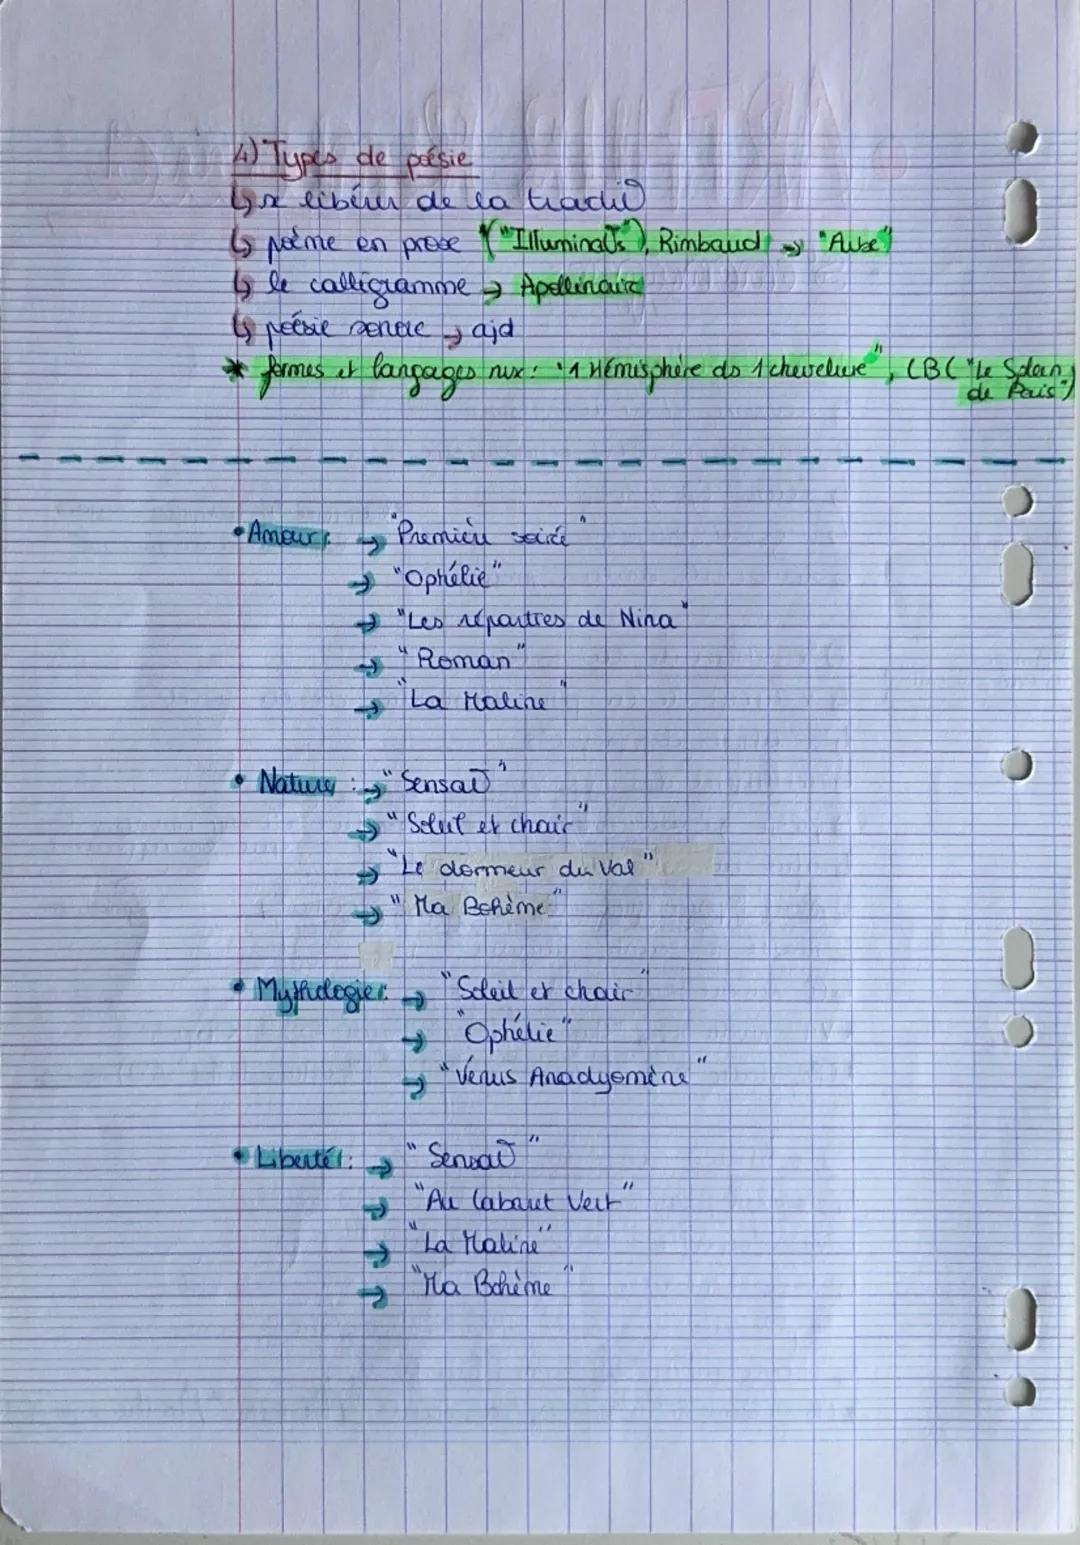 4) Types de poésie
↳ se libérer de la tradit°
↳ poème en prose ("Illuminat°s"), Rimbaud → "Aube"
↳ le calligramme → Apollinaire
↳ poésie sonore → ajd
* formes et langages nvx : "1 Hémisphère ds 1 chevelure", CB ("Le Spleen
de Paris")
• Amour : → "Première soirée"
→ "Ophélie"
→ "Les réparties de Nina"
→ "Roman"
→ "La Maline"
• Nature : → "Sensat°"
→ "Solut et chair"
→ "Le dormeur du Val"
→ "Ma Bohème"
• Mythologie : → "Soleil et chair"
→ "Ophélie"
→ "Vénus Anadyomène"
• Liberté : → "Sensat°"
→ "Au Cabaret Vert"
→ "La Maline"
→ "Ma Bohème"